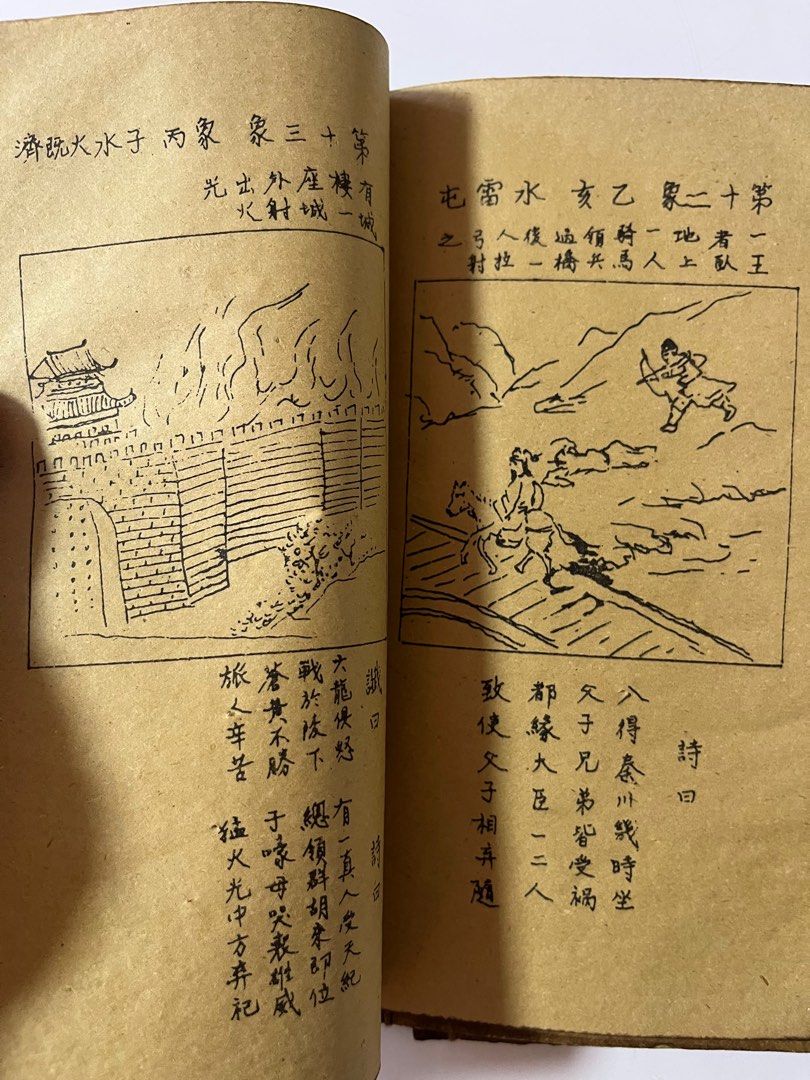 第十二象 乙亥 水雷屯
一王者臥地上一人騎馬領兵過橋後一人拉弓射之
詩曰
入得秦川幾時坐
父子兄弟皆受祸
都緣大臣一二人
致使父子相弃隨
第十三象 象丙子水火既濟
有城樓一座城外射出火光
讖曰
六龍俱怒
戰於陵下
蒼黃不勝
旅人辛苦
詩曰
有一真人天紀
總領群胡來即位
子嚎母哭雄威
猛火光中方弃祀